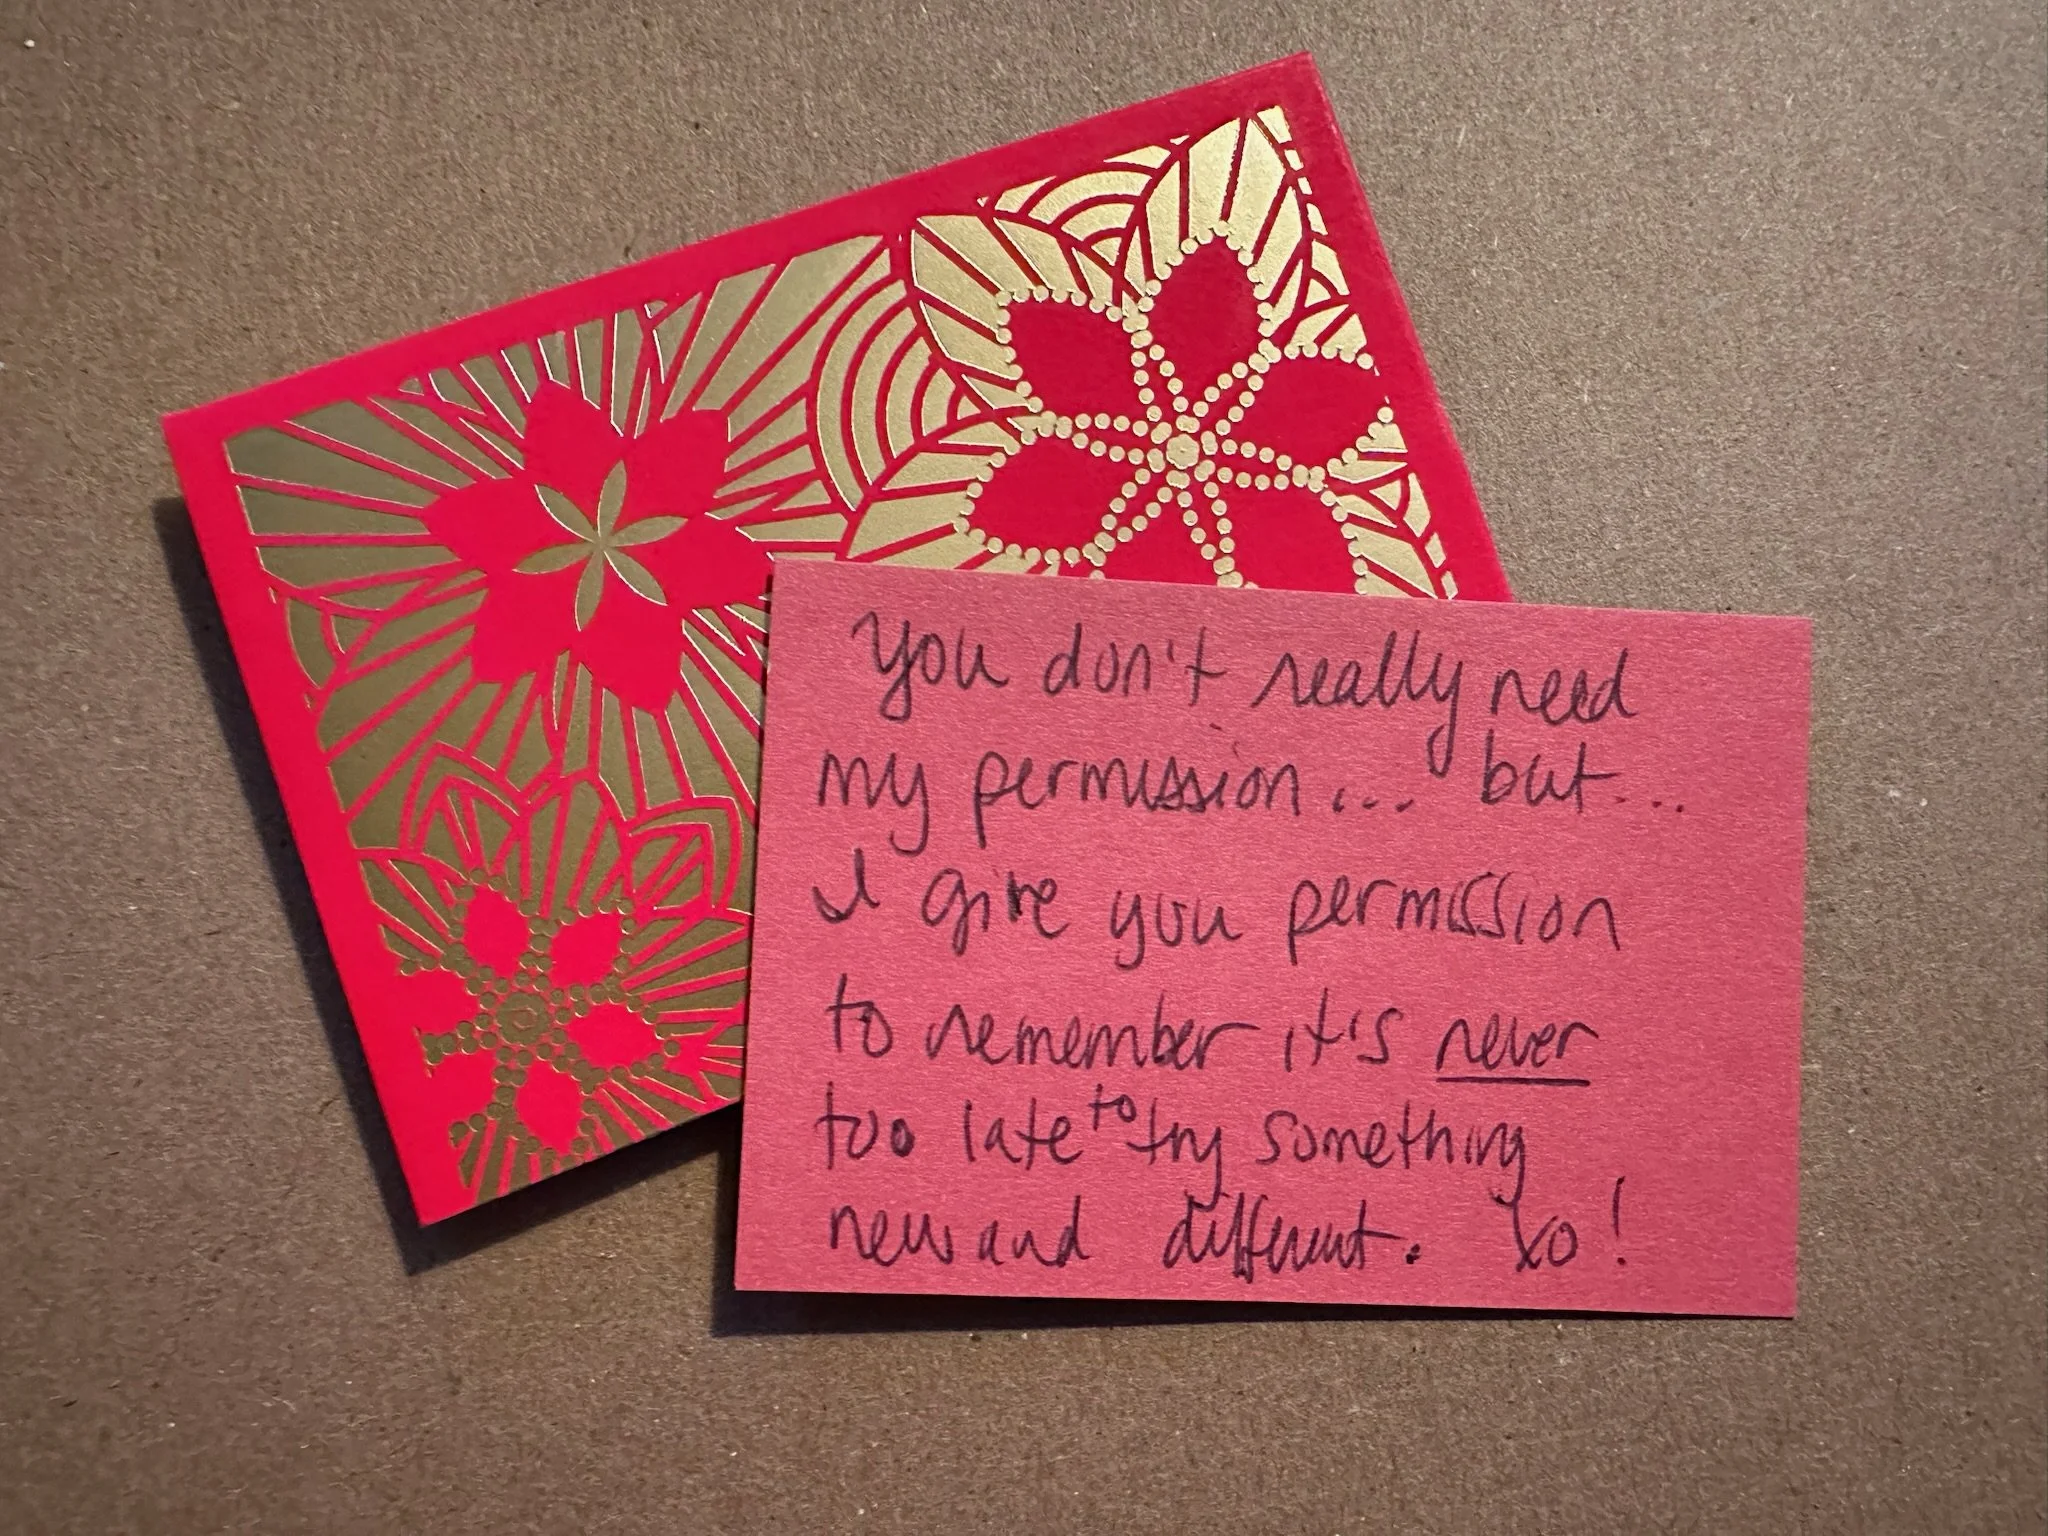 You don't really need
my permission... but...
I give you permission
to remember it's never
too late to try something
new and different. xo!